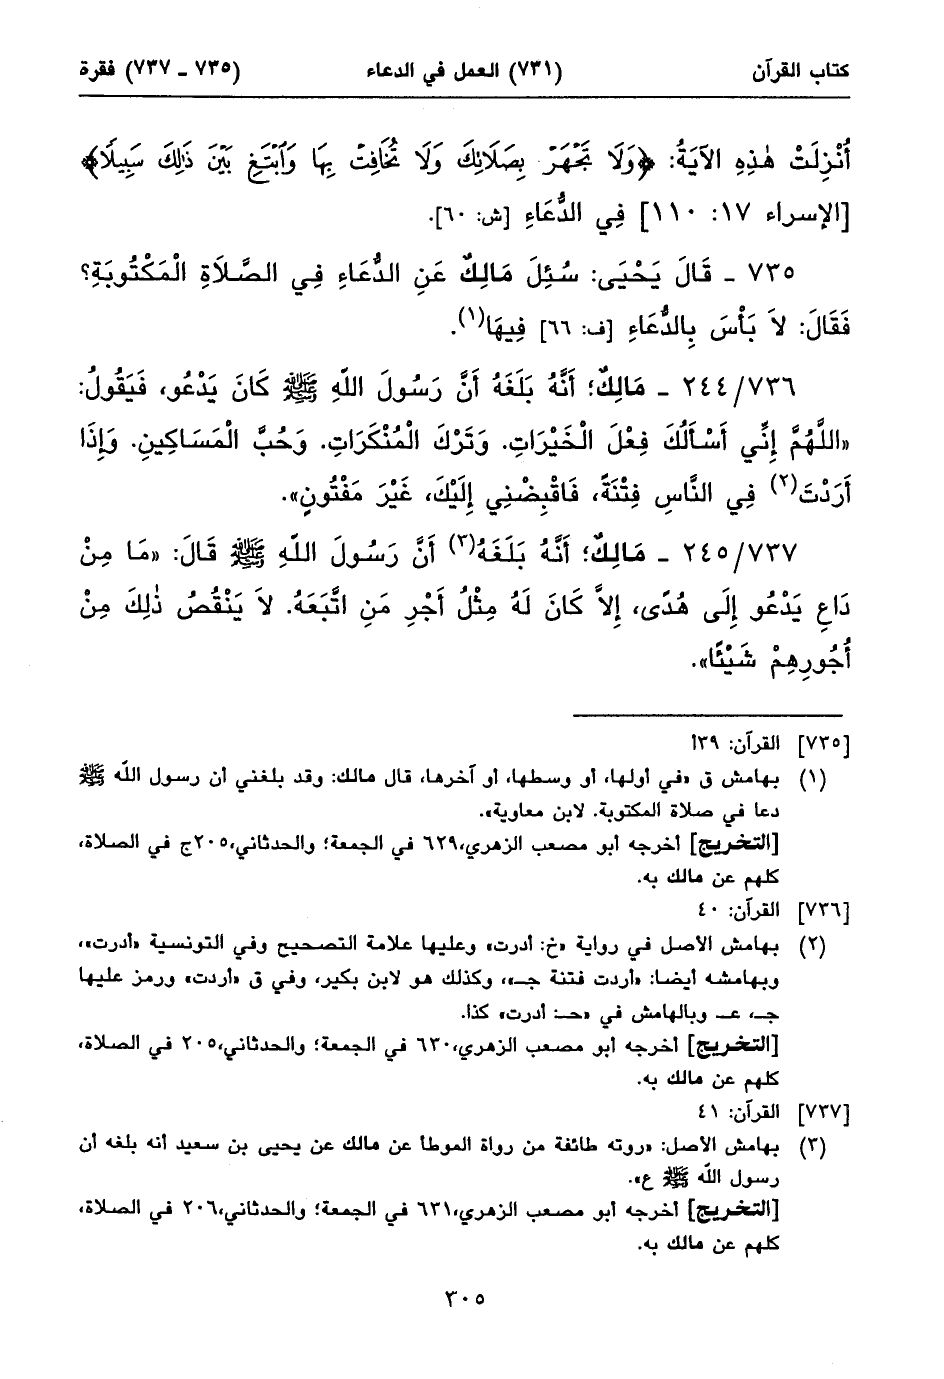 كتاب القرآن (٧٣١) العمل في الدعاء (٧٣٥ - ٧٣٧) فقرة
أُنْزِلَتْ هٰذِهِ الآيَةُ: ﴿وَلَا تَجْهَرْ بِصَلَاتِكَ وَلَا تُخَافِتْ بِهَا وَٱبْتَغِ بَيْنَ ذَٰلِكَ سَبِيلًا﴾
[الإسراء ١٧: ١١٠] فِي الدُّعَاءِ [ش: ٦٠].
٧٣٥ - قَالَ يَحْيَى: سُئِلَ مَالِكٌ عَنِ الدُّعَاءِ فِي الصَّلَاةِ الْمَكْتُوبَةِ؟
فَقَالَ: لاَ بَأْسَ بِالدُّعَاءِ [ف: ٦٦] فِيهَا(١).
٢٤٤/٧٣٦ - مَالِكٌ؛ أَنَّهُ بَلَغَهُ أَنَّ رَسُولَ اللّهِ ﷺ كَانَ يَدْعُو، فَيَقُولُ:
«اللَّهُمَّ إِنِّي أَسْأَلُكَ فِعْلَ الْخَيْرَاتِ. وَتَرْكَ الْمُنْكَرَاتِ. وَحُبَّ الْمَسَاكِينِ. وَإِذَا
أَرَدْتَ(٢) فِي النَّاسِ فِتْنَةً، فَاقْبِضْنِي إِلَيْكَ، غَيْرَ مَفْتُونٍ».
٢٤٥/٧٣٧ - مَالِكٌ؛ أَنَّهُ بَلَغَهُ(٣) أَنَّ رَسُولَ اللّهِ ﷺ قَالَ: «مَا مِنْ
دَاعٍ يَدْعُو إِلَى هُدًى، إِلاَّ كَانَ لَهُ مِثْلُ أَجْرِ مَنِ اتَّبَعَهُ. لاَ يَنْقُصُ ذٰلِكَ مِنْ
أُجُورِهِمْ شَيْئًا».
[٧٣٥] القرآن: ٣٩أ
(١) بهامش ق «في أولها، أو وسطها، أو آخرها، قال مالك: وقد بلغني أن رسول اللّه ﷺ
دعا في صلاة المكتوبة. لابن معاوية».
[التخريج] أخرجه أبو مصعب الزهري،٦٢٩ في الجمعة؛ والحدثاني،٢٠٥ج في الصلاة،
كلهم عن مالك به.
[٧٣٦] القرآن: ٤٠
(٢) بهامش الأصل في رواية «خ: أدرت» وعليها علامة التصحيح وفي التونسية «أدرت»،
وبهامشه أيضا: «أردت فتنة جـ»، وكذلك هو لابن بكير، وفي ق «أردت» ورمز عليها
جـ، عـ وبالهامش في «حـ: أدرت» كذا.
[التخريج] أخرجه أبو مصعب الزهري،٦٣٠ في الجمعة؛ والحدثاني،٢٠٥ في الصلاة،
كلهم عن مالك به.
[٧٣٧] القرآن: ٤١
(٣) بهامش الأصل: «روته طائفة من رواة الموطأ عن مالك عن يحيى بن سعيد أنه بلغه أن
رسول اللّه ﷺ ع».
[التخريج] أخرجه أبو مصعب الزهري،٦٣١ في الجمعة؛ والحدثاني،٢٠٦ في الصلاة،
كلهم عن مالك به.
٣٠٥